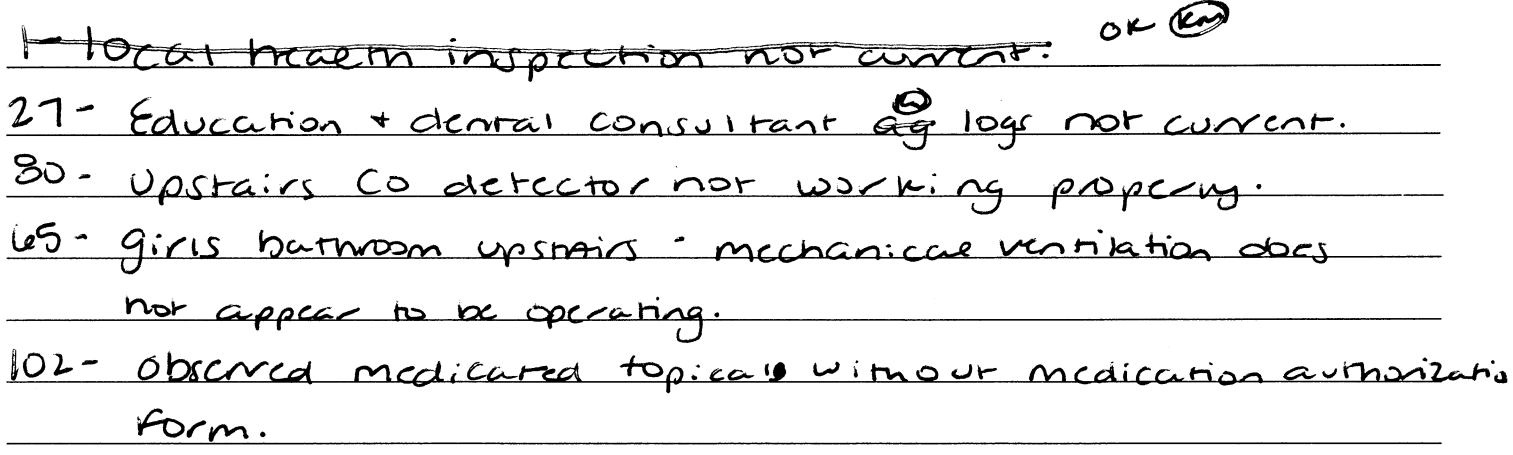 1- local health inspection not current. OK KM
27- Education + dental consultant ag logs not current.
30- Upstairs CO detector not working properly.
65- girls bathroom upstairs - mechanical ventilation does
not appear to be operating.
102- Observed medicated topicals without medication authorizatio
form.